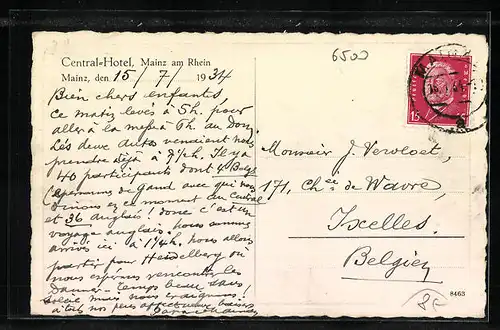 6500
Central-Hotel, Mainz am Rhein
Mainz, den 15/7/1934
Bien chers enfants,
Ce matin levés à 5h. pour
aller à la messe à 6h. au Dom.
Les deux autos venaient nous
prendre déjà à 7½h. Il y a
40 participants dont 4 Belges
personnes de Gand avec qui nous
en ce moment au Central
et 36 anglais! donc c'est un
voyage anglais. nous sommes
arrivés ici à 1¼h. nous allons
partir pour Heidelberg où
nous espérons rencontrer les
temps beau,
mais nous
nos plus affectueux baisers
15
Monsieur J. Vervloet,
171, Chée de Wavre,
Ixelles.
Belgien
8463